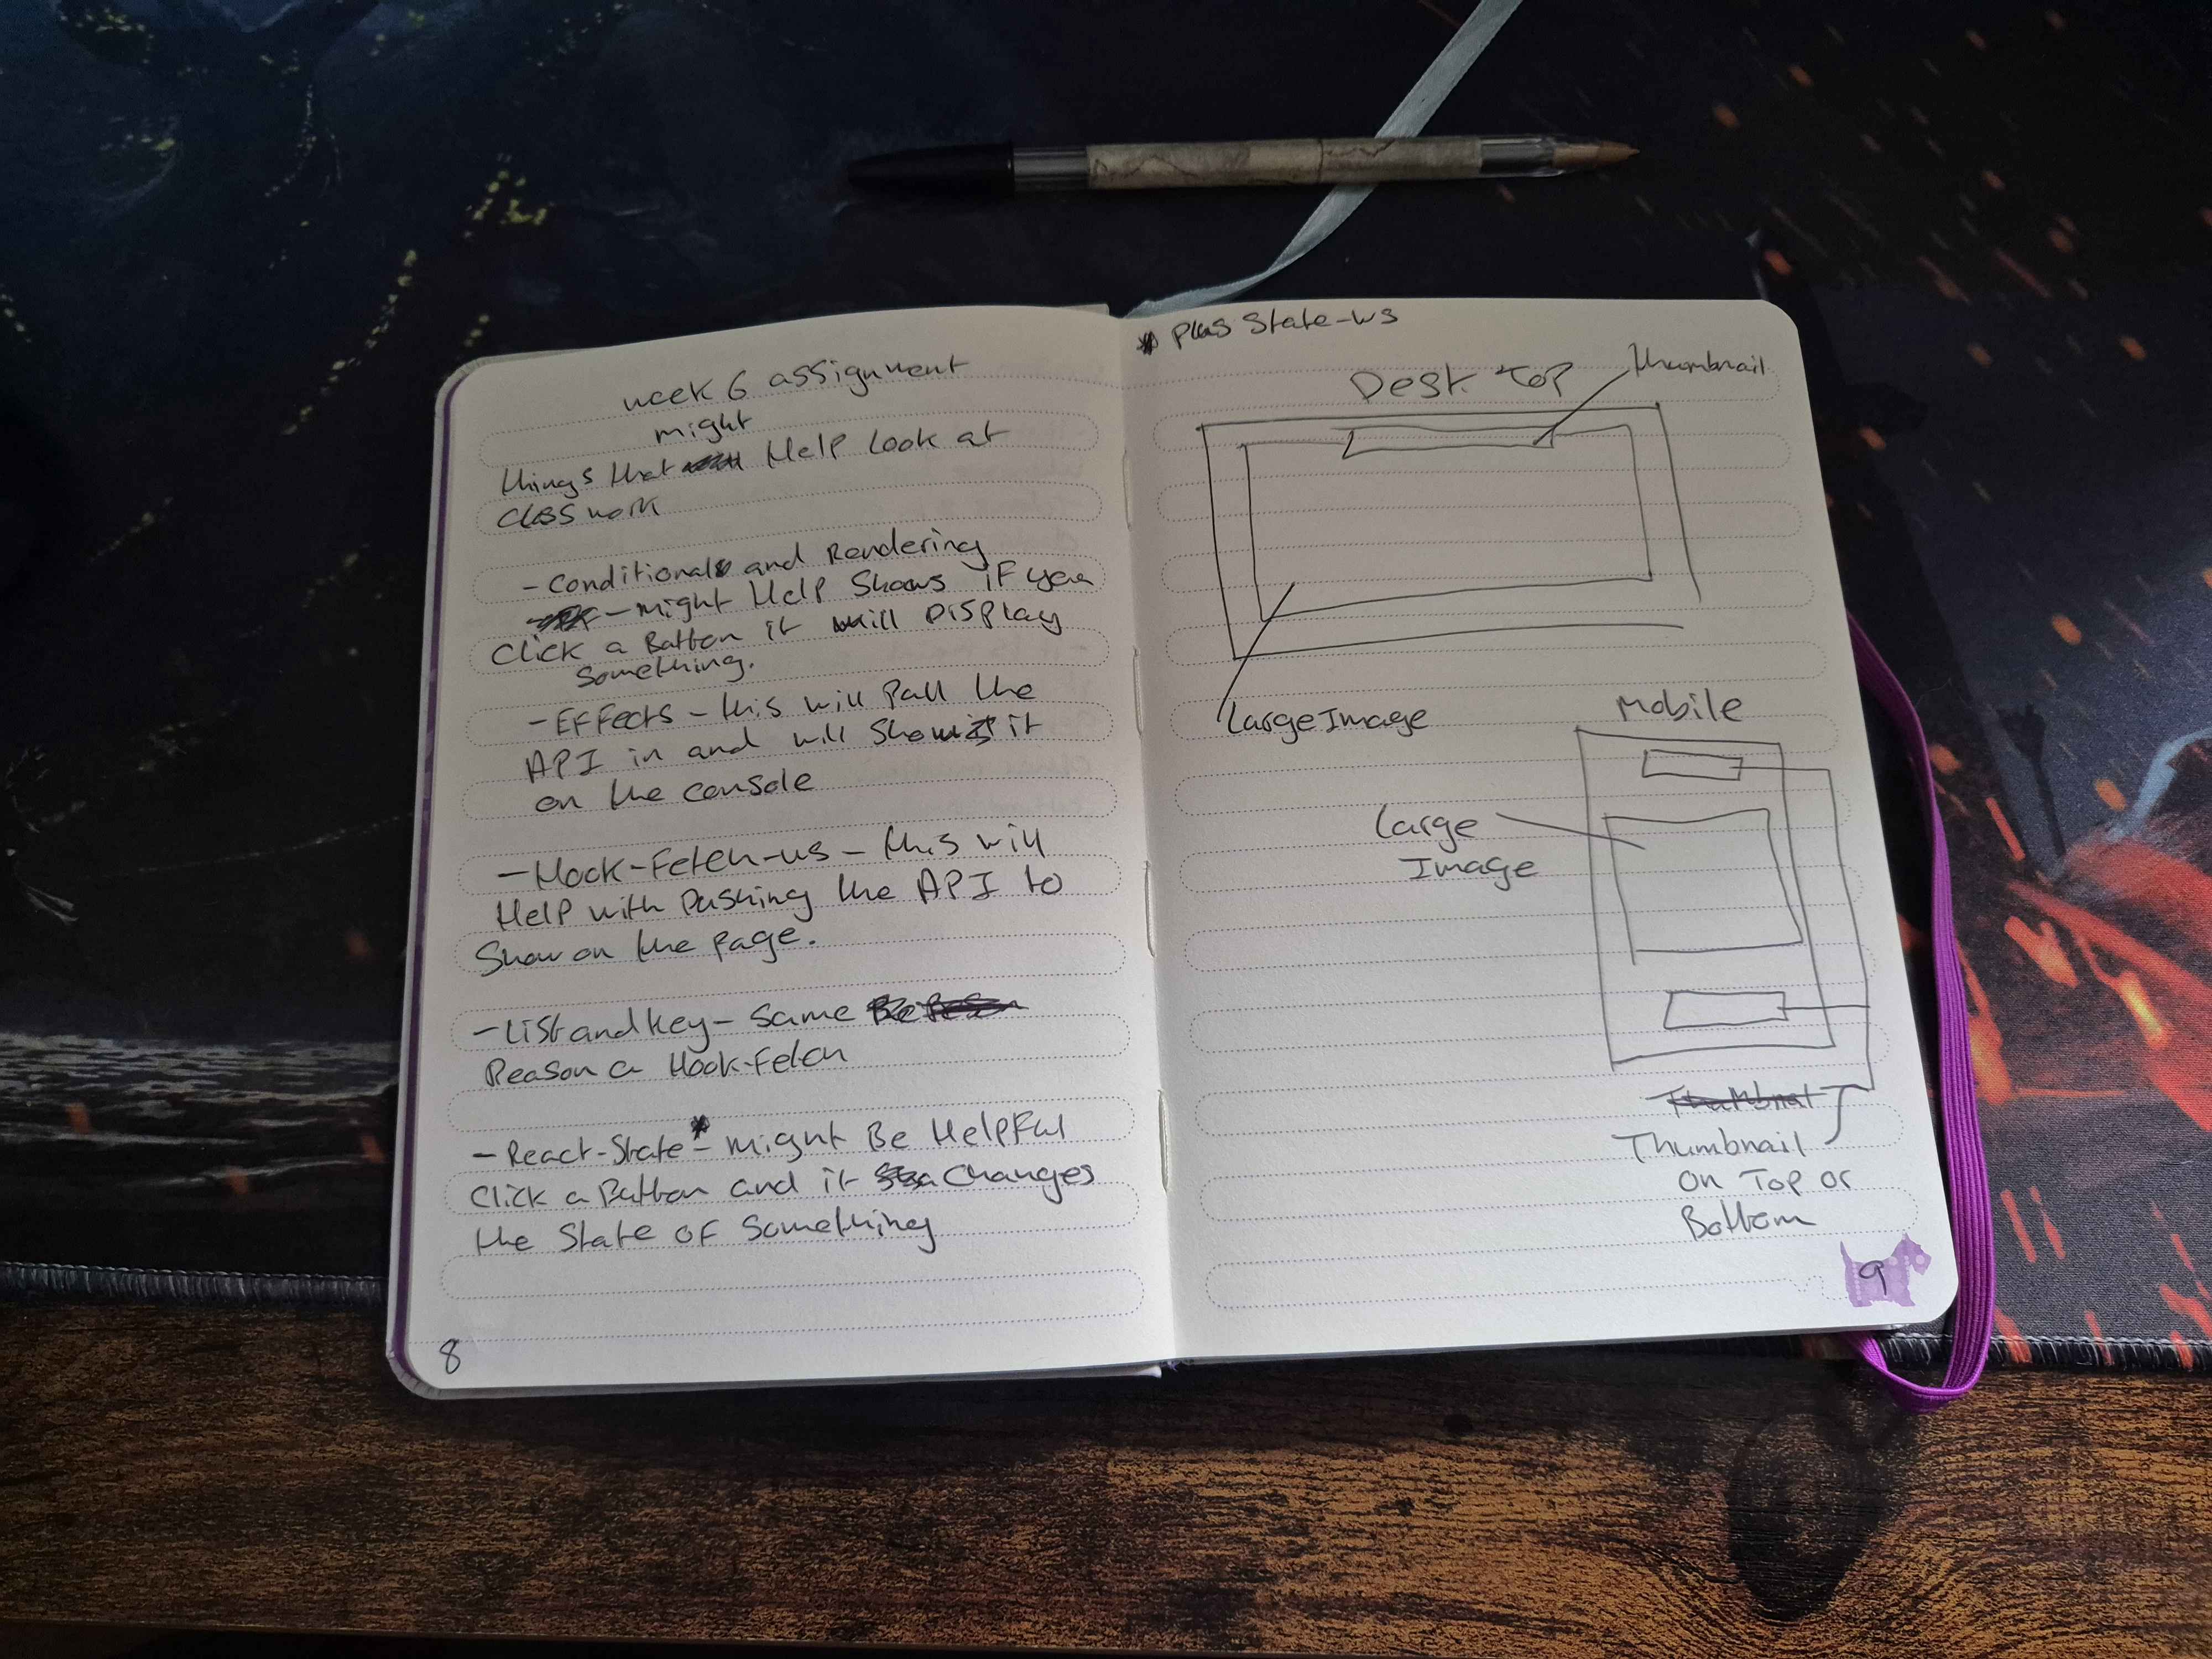 week 6 assignment
might
things that Help look at
class work
- Conditionals and Rendering
- might Help Shows if you
Click a Button it will Display
Something.
- Effects - this will Pull the
API in and will Show it
on the console
- Mock-Fetch-ws - this will
Help with Pushing the API to
Show on the page.
- List and key - Same
Reason a Mock-Fetch
- React-State* - might Be HelpFul
Click a Button and it Changes
the State of Something
8
* plus State-ws
Desk Top
thumbnail
Large Image
Mobile
Large
Image
Thumbnail
Thumbnail
on Top or
Bottom
9